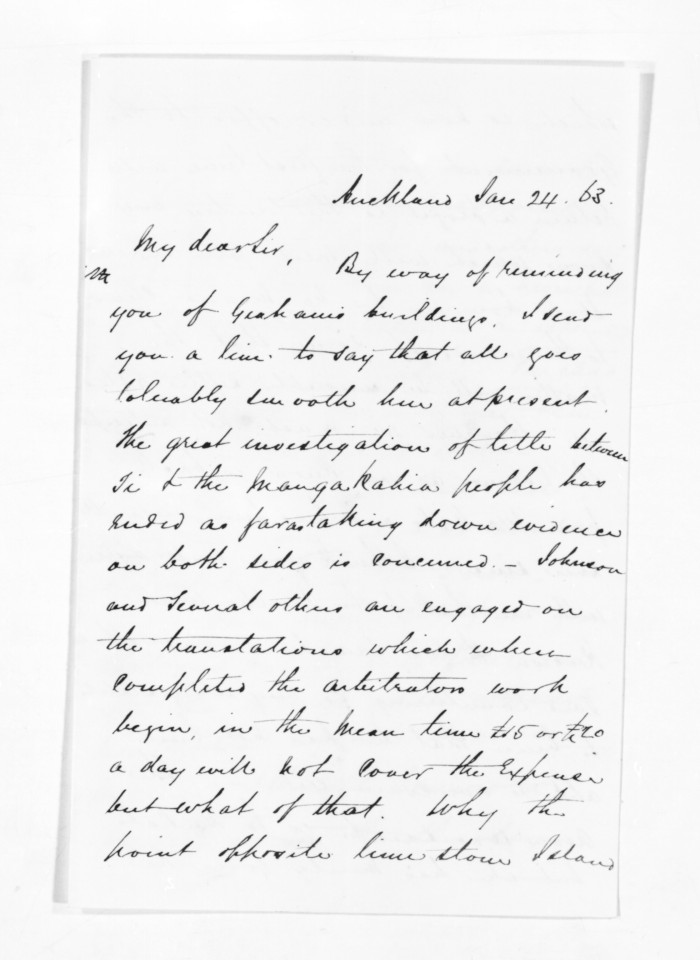 Auckland Jan 24. 63.
My dear Sir,
By way of reminding
you of Grahams buildings, I send
you a line to say that all goes
tolerably smooth here at present.
The great investigation of title between
Ti & the Mangakahia people has
ended as far as taking down evidence
on both sides is concerned. - Johnson
and several others are engaged on
the translations which when
completed the arbitrators work
begin, in the mean time £15 or £20
a day will not cover the Expense
but what of that. Why the
point opposite lime stone Island